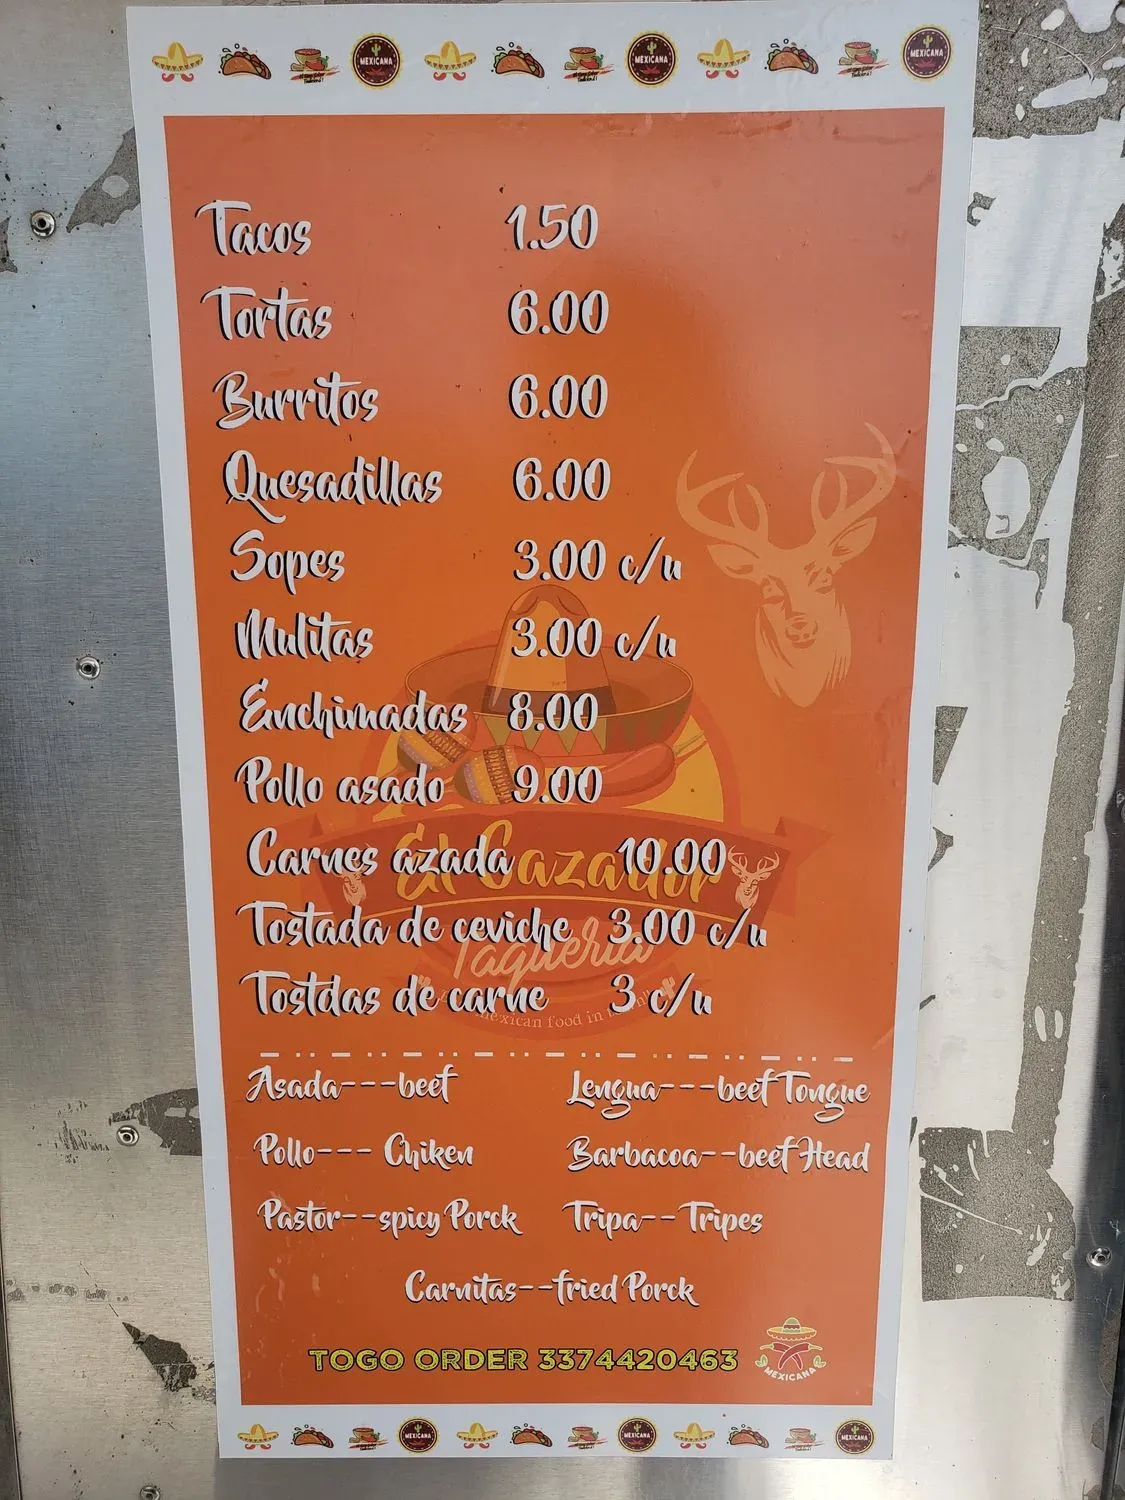 MEXICANA MEXICANA MEXICANA
Tacos 1.50
Tortas 6.00
Burritos 6.00
Quesadillas 6.00
Sopes 3.00 c/u
Mulitas 3.00 c/u
Enchimadas 8.00
Pollo asado 9.00
Carnes azada 10.00
El Cazador
Tostada de ceviche 3.00 c/u
Taqueria
Tostdas de carne 3 c/u
mexican food in
Asada---beef Lengua---beef Tongue
Pollo--- Chiken Barbacoa--beef Head
Pastor--spicy Porck Tripa--Tripes
Carnitas--fried Porck
TOGO ORDER 3374420463
MEXICANA
MEXICANA MEXICANA MEXICANA